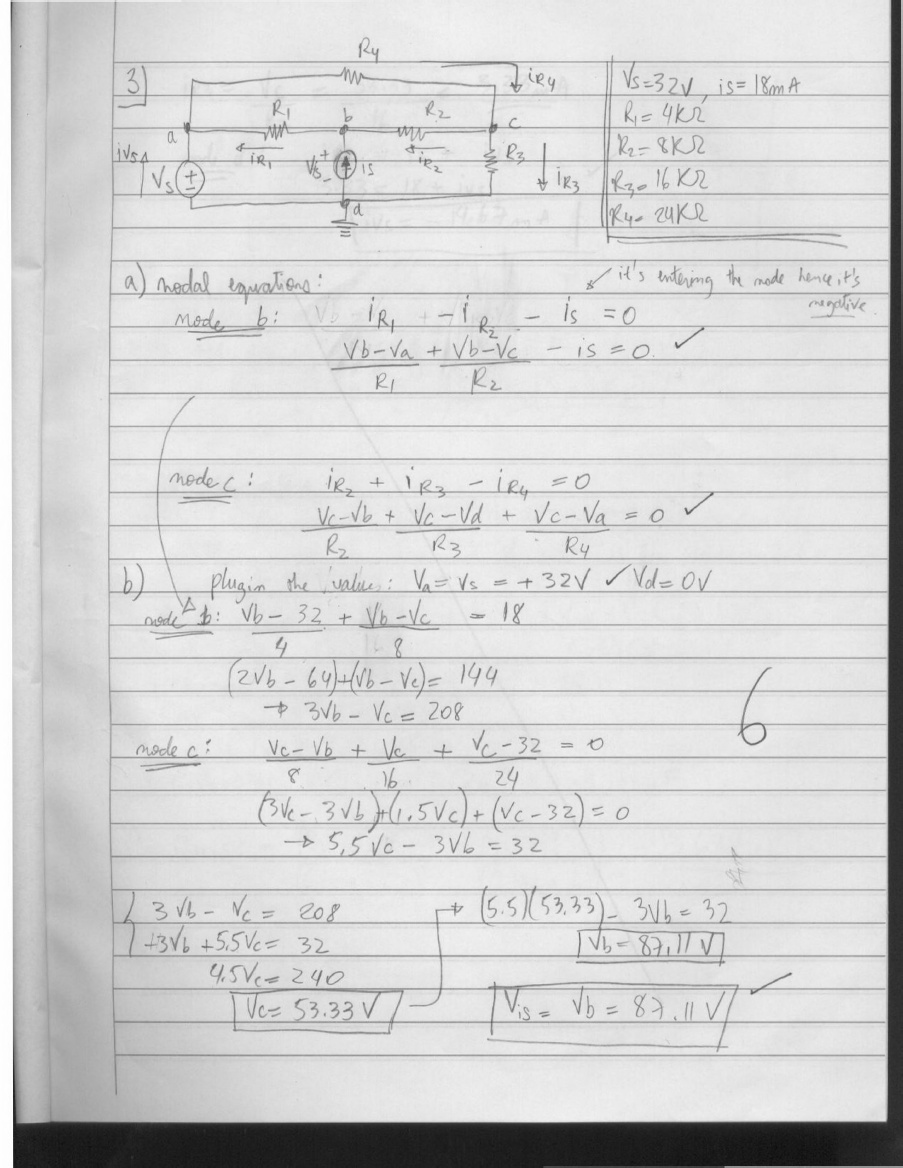 3]
R4
iR4
Vs=32V, is=18mA
R1=4KΩ
R2=8KΩ
R3=16KΩ
R4=24KΩ
a
R1
b
R2
c
ivs
iR1
iR2
R3
iR3
Vs
+
-
Vis
+
-
is
d
a) nodal equations:
it's entering the node hence, it's
negative
node b: iR1 + -iR2 - is = 0
Vb-Va/R1 + Vb-Vc/R2 - is = 0. ✓
node c: iR2 + iR3 - iR4 = 0
Vc-Vb/R2 + Vc-Vd/R3 + Vc-Va/R4 = 0 ✓
b) plugin the values: Va= Vs = +32V ✓ Vd=0V
node b: Vb-32/4 + Vb-Vc/8 = 18
(2Vb-64)+(Vb-Vc)= 144
→ 3Vb-Vc = 208
6
node c: Vc-Vb/8 + Vc/16 + Vc-32/24 = 0
(3Vc-3Vb)+(1.5Vc)+(Vc-32)=0
→ 5,5Vc - 3Vb = 32
3Vb - Vc = 208
+3Vb +5.5Vc= 32
4.5Vc= 240
Vc= 53.33 V
→ (5.5)(53.33) - 3Vb = 32
Vb= 87,11 V
Vis = Vb = 87.11 V ✓